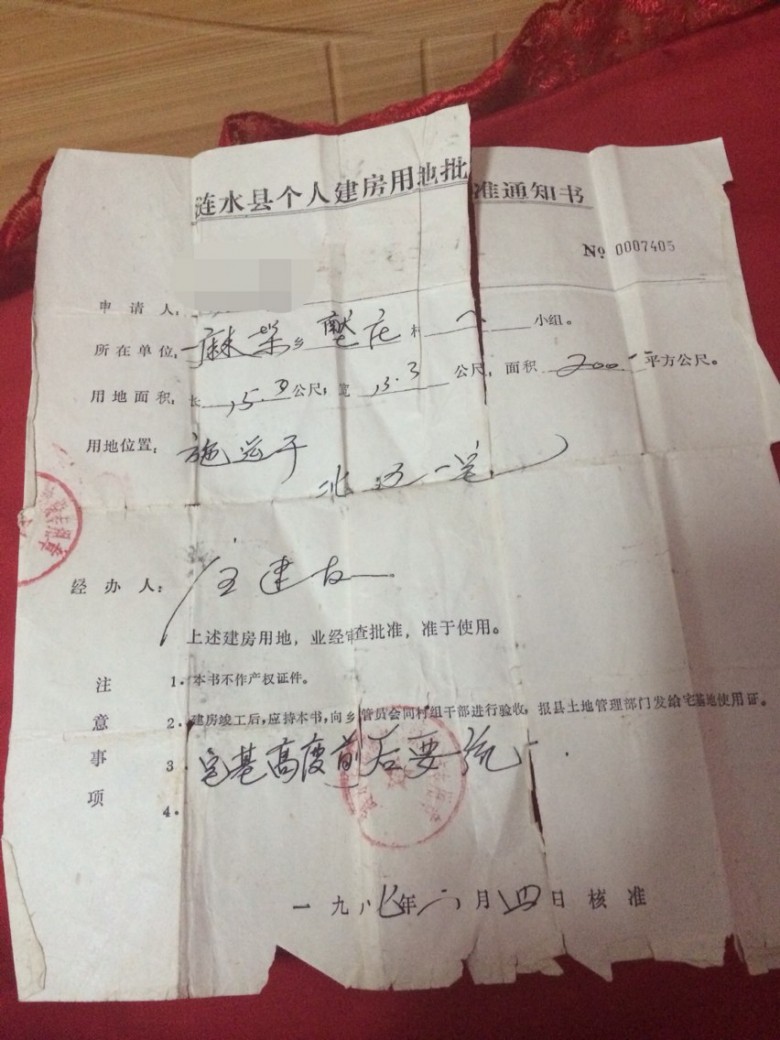 涟水县个人建房用地批准通知书
№ 0007405
申请人：
所在单位：麻垛乡 庄村 小组。
用地面积：长15.3公尺；宽13.3公尺，面积200.平方公尺。
用地位置：
北 一宅
经办人： 建
上述建房用地，业经审查批准，准于使用。
注意事项
1. 本书不作产权证件。
2. 建房竣工后，应持本书，向乡管员会同村组干部进行验收，报县土地管理部门发给宅基地使用证。
3 宅基高度前后要统一.
4.
一九八七年 月 四日核准